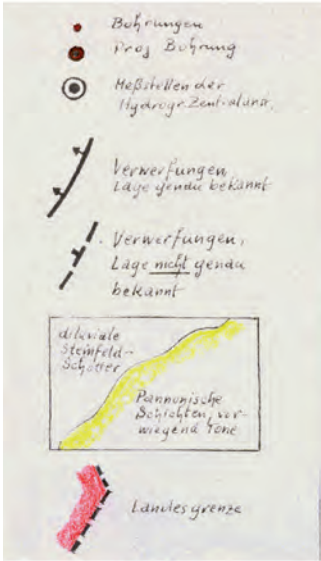 Bohrungen
Proj Bohrung
Meßstellen der
Hydrogr. Zentralanst.
Verwerfungen,
Lage genau bekannt
Verwerfungen,
Lage nicht genau
bekannt
diluviale
Steinfeld-
Schotter
Pannonische
Schichten, vor-
wiegend Tone
Landesgrenze